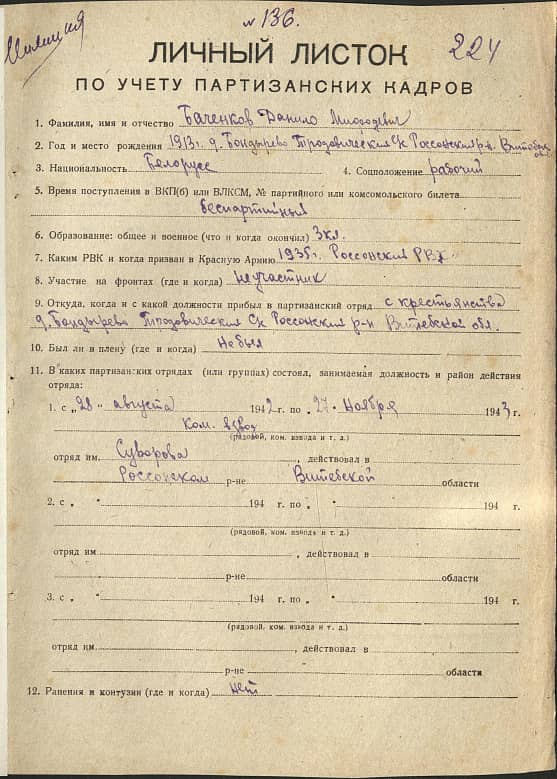 № 136.
Милиция
224
ЛИЧНЫЙ ЛИСТОК
ПО УЧЕТУ ПАРТИЗАНСКИХ КАДРОВ
1. Фамилия, имя и отчество Баченков Данило
2. Год и место рождения 1913 г. д. Бондырево С/с Россонский р-н. Витебск обл.
3. Национальность Белорусс 4. Соцположение рабочий
5. Время поступления в ВКП(б) или ВЛКСМ, № партийного или комсомольского билета
беспартийный
6. Образование: общее и военное (что и когда окончил) 3 кл.
7. Каким РВК и когда призван в Красную Армию 1935 г. Россонским РВК
8. Участие на фронтах (где и когда) не участник
9. Откуда, когда и с какой должности прибыл в партизанский отряд с крестьянства
д. Бондырево С/с Россонский р-н Витебская обл.
10. Был ли в плену (где и когда) Не был
11. В каких партизанских отрядах (или группах) состоял, занимаемая должность и район действия
отряда:
1. с „28" августа 1942 г. по „27" Ноября 1943 г.
Ком. взвод
(рядовой, ком. взвода и т. д.)
отряд им. Суворова, действовал в
Россонском р-не Витебской области
2. с „ " 194 г. по „ " 194 г.
(рядовой, ком. взвода и т. д.)
отряд им , действовал в
р-не области
3. с „ " 194 г. по „ " 194 г.
(рядовой, ком. взвода и т. д.)
отряд им. , действовал в
р-не области
12. Ранения и контузии (где и когда) нет